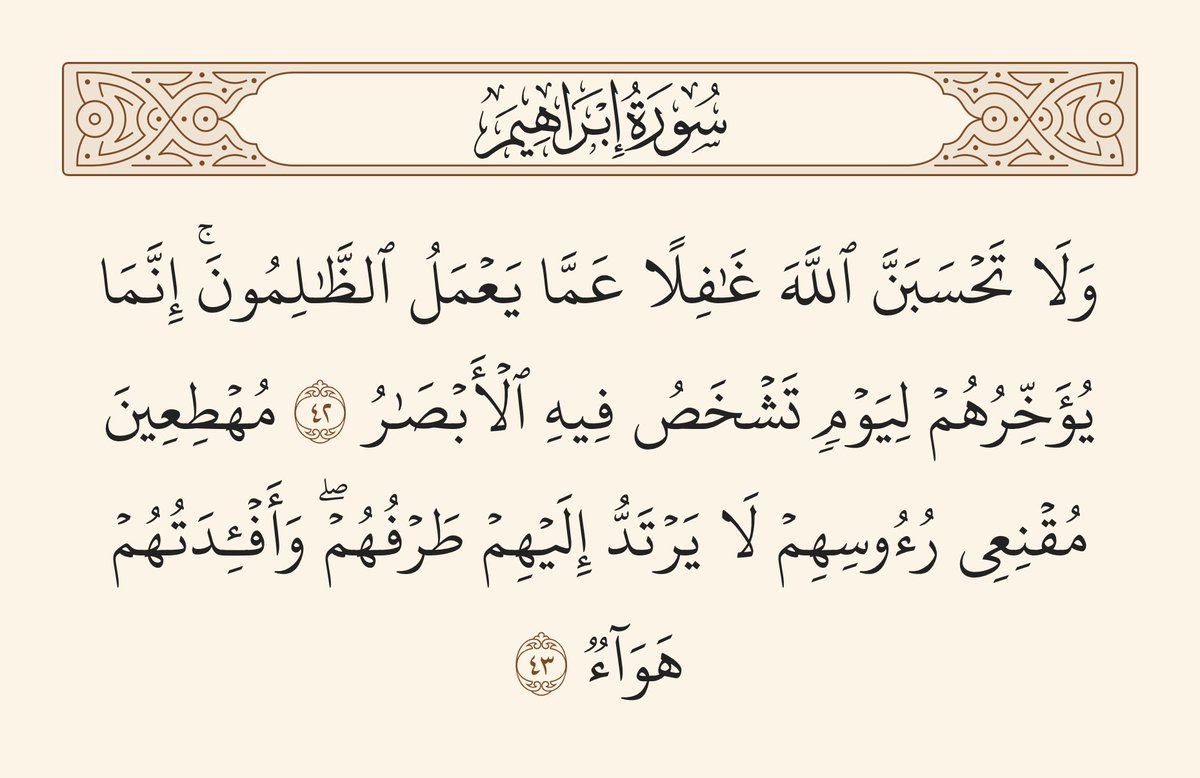 سُورَةُ إِبْرَاهِيمَ
وَلَا تَحْسَبَنَّ ٱللَّهَ غَٰفِلًا عَمَّا يَعْمَلُ ٱلظَّٰلِمُونَ ۚ إِنَّمَا
يُؤَخِّرُهُمْ لِيَوْمٍ تَشْخَصُ فِيهِ ٱلْأَبْصَٰرُ ٤٢ مُهْطِعِينَ
مُقْنِعِى رُءُوسِهِمْ لَا يَرْتَدُّ إِلَيْهِمْ طَرْفُهُمْ ۖ وَأَفْـِٔدَتُهُمْ
هَوَآءٌ ٤٣